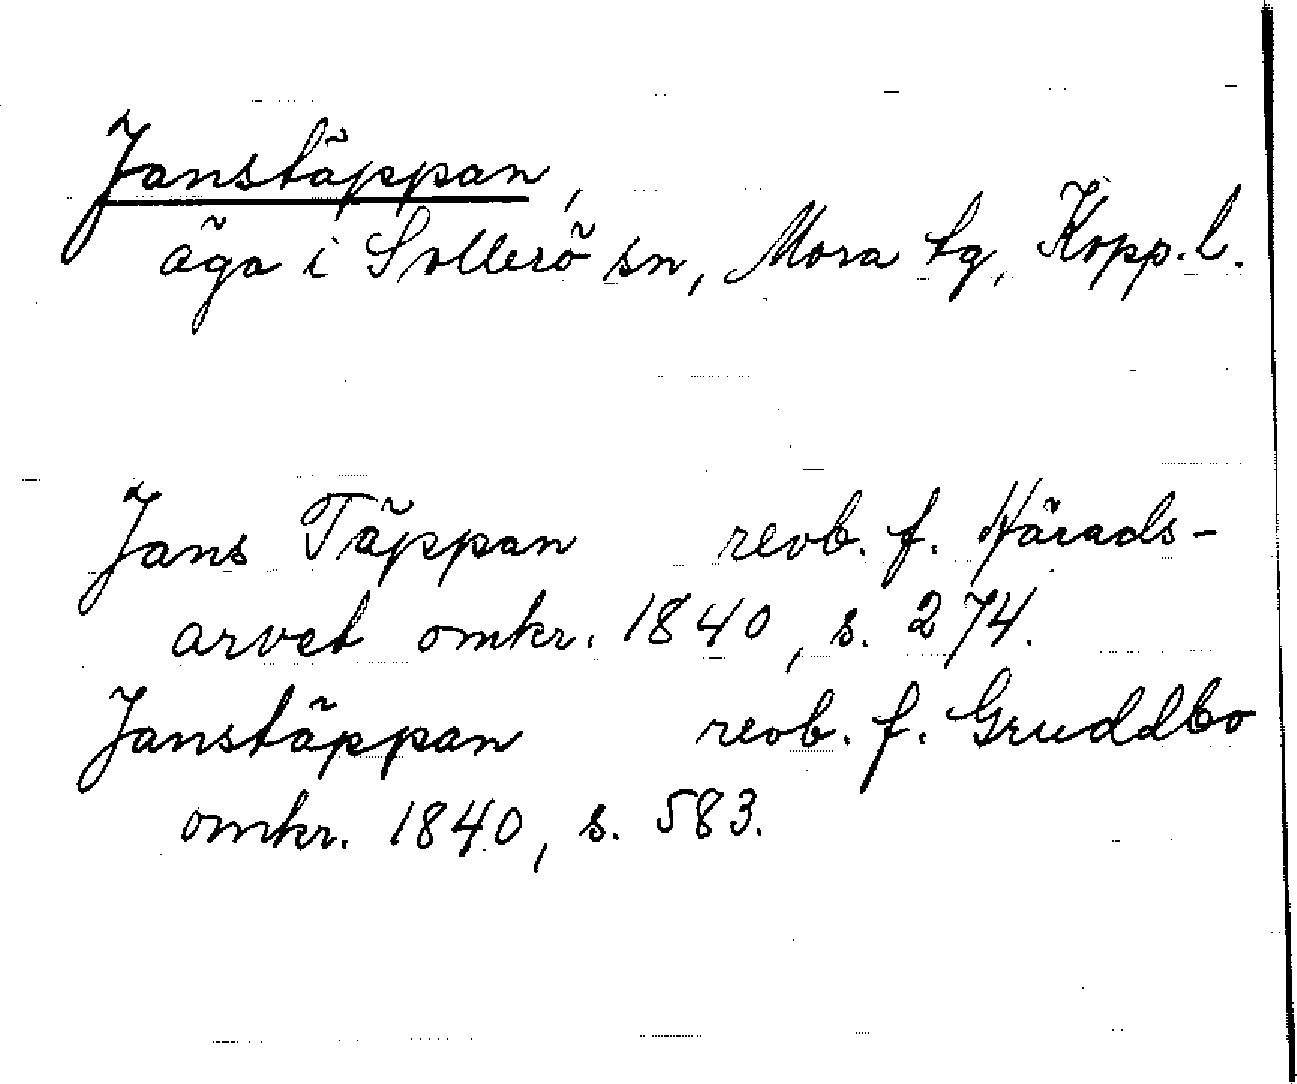 Janstäppan,
äga i Sollerö sn, Mora tg, Kopp. l.
Jans Täppan revb. f. Härads-
arvet omkr. 1840, s. 274.
Janstäppan revb. f. Gruddbo
omkr. 1840, s. 583.